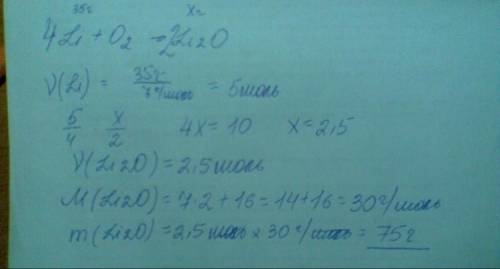 35г xг
4Li + O2 = 2Li2O
ν(Li) = 35г / 7г/моль = 5моль
5/4 x/2 4x = 10 x = 2,5
ν(Li2O) = 2,5моль
M(Li2O) = 7·2 + 16 = 14 + 16 = 30г/моль
m(Li2O) = 2,5моль x 30г/моль = 75г